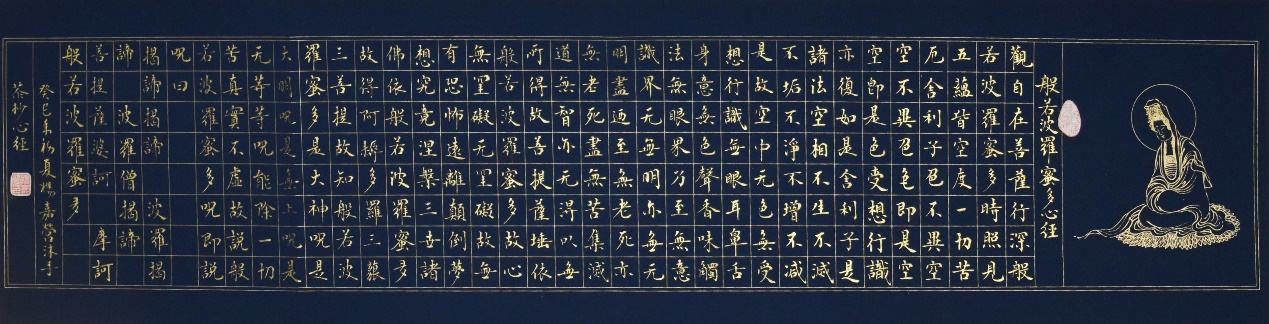 般若波羅蜜多心經
觀自在菩薩行深般
若波羅蜜多時照見
五蘊皆空度一切苦
厄舍利子色不異空
空不異色色即是空
空即是色受想行識
亦復如是舍利子是
諸法空相不生不滅
不垢不淨不增不減
是故空中无色無受
想行識無眼耳鼻舌
身意無色聲香味觸
法無眼界乃至無意
識界无無明亦無无
明盡迺至無老死亦
無老死盡無苦集滅
道無智亦无得以無
所得故菩提薩埵依
般若波羅蜜多故心
無罣礙无罣礙故無
有恐怖遠離顛倒夢
想究竟涅槃三世諸
佛依般若波羅蜜多
故得阿耨多羅三藐
三菩提故知般若波
羅蜜多是大神呪是
大明呪是無上呪是
无等等呪能除一切
苦真實不虛故說般
若波羅蜜多呪即說
呪曰
揭諦揭諦 波羅揭
諦 波羅僧揭諦
菩提薩婆訶 摩訶
般若波羅蜜多
癸巳 初夏楊嘉 沐手
茶抄心經